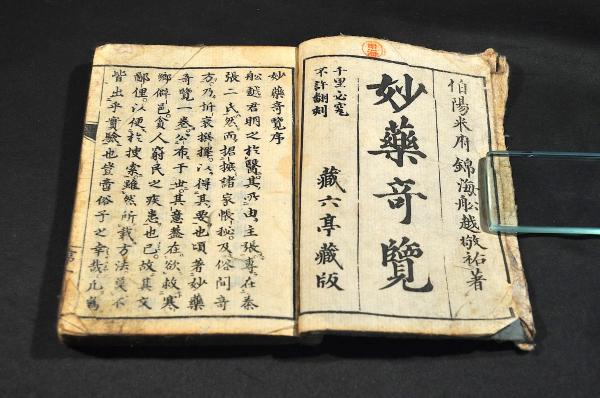 伯陽米府 錦海舩越敬祐著
妙藥奇覽
藏六亭藏版
千里必究
不許翻刻
妙藥奇覽序
舩越君明之於醫其乃由主張專在秦
張二氏然而招摭諸家帳秘及俗間奇
方乃折衷撰擇以得其要也頃著妙藥
奇覽一卷公布于世其意蓋在欲救寒
鄉僻邑貧人窮民之疾患也已故其文
鄙俚以便於搜索雖然所載方法莫不
皆出乎實驗也豈啻俗子之幸哉凡寫